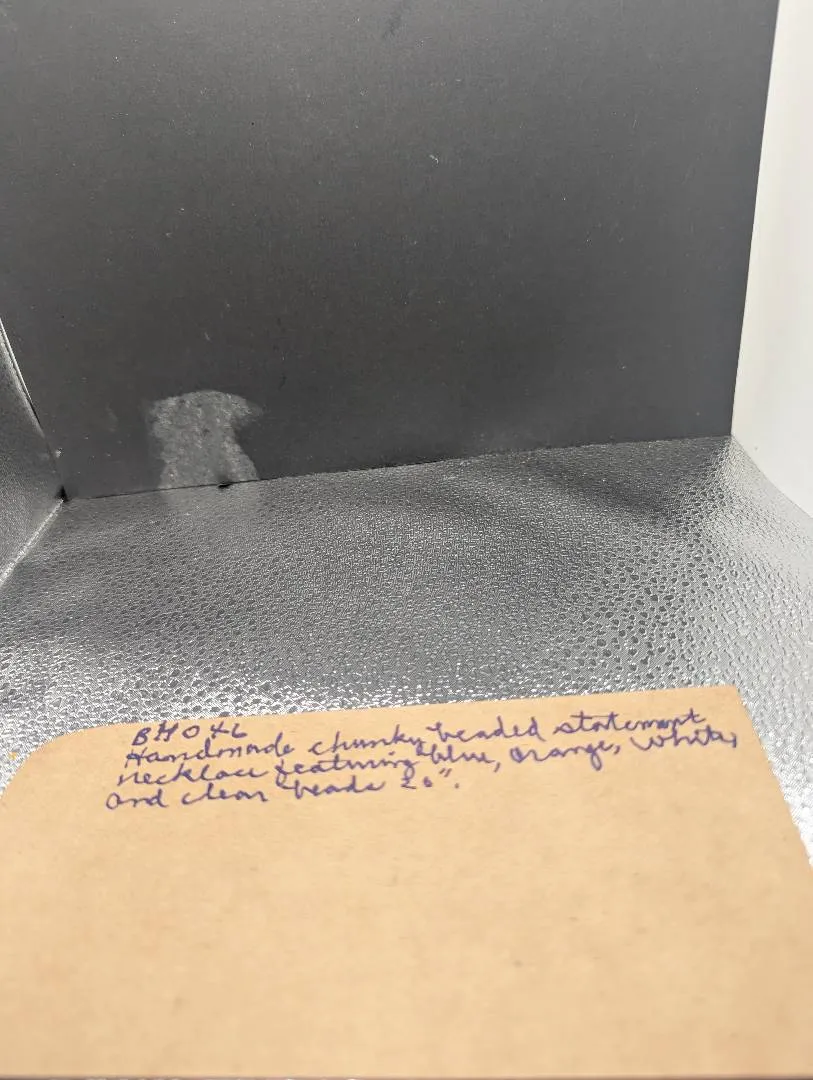 Handmade chunky beaded statement
necklace featuring blue, orange, white,
and clear beads 20".